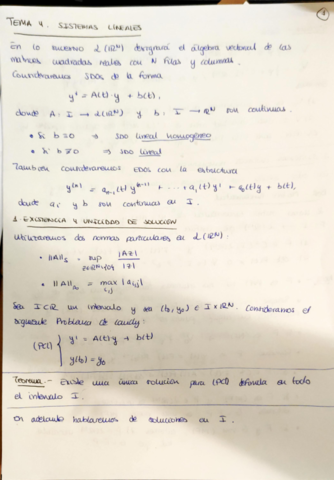 TEMA 4. SISTEMAS LINEALES
En lo sucesivo 𝓛(ℝᴺ) designará el álgebra vectorial de las
matrices cuadradas reales con N filas y columnas.
Consideraremos SDOs de la forma
y' = A(t)·y + b(t),
donde A: I → 𝓛(ℝᴺ) y b: I → ℝᴺ son continuas.
• Si b ≡ 0 ⇒ SDO lineal homogéneo
• Si b ≢ 0 ⇒ SDO lineal
También consideraremos EDOs con la estructura
y⁽ⁿ⁾ = aₙ₋₁(t) y⁽ⁿ⁻¹⁾ + ... + a₁(t) y' + a₀(t) y + b(t),
donde aᵢ y b son continuas en I.
1. EXISTENCIA Y UNICIDAD DE SOLUCIÓN
Utilizaremos dos normas particulares en 𝓛(ℝᴺ).
• ||A|| = sup |Az| / |z|
z∈ℝᴺ\{0}
• ||A||∞ = max |aᵢⱼ|
i,j
Sea I⊂ℝ un intervalo y sea (t₀, y₀) ∈ I×ℝᴺ. Consideramos el
siguiente Problema de Cauchy:
(PC) { y' = A(t)y + b(t)
y(t₀) = y₀
Teorema.- Existe una única solución para (PC) definida en todo
el intervalo I.
En adelante hablaremos de soluciones en I.